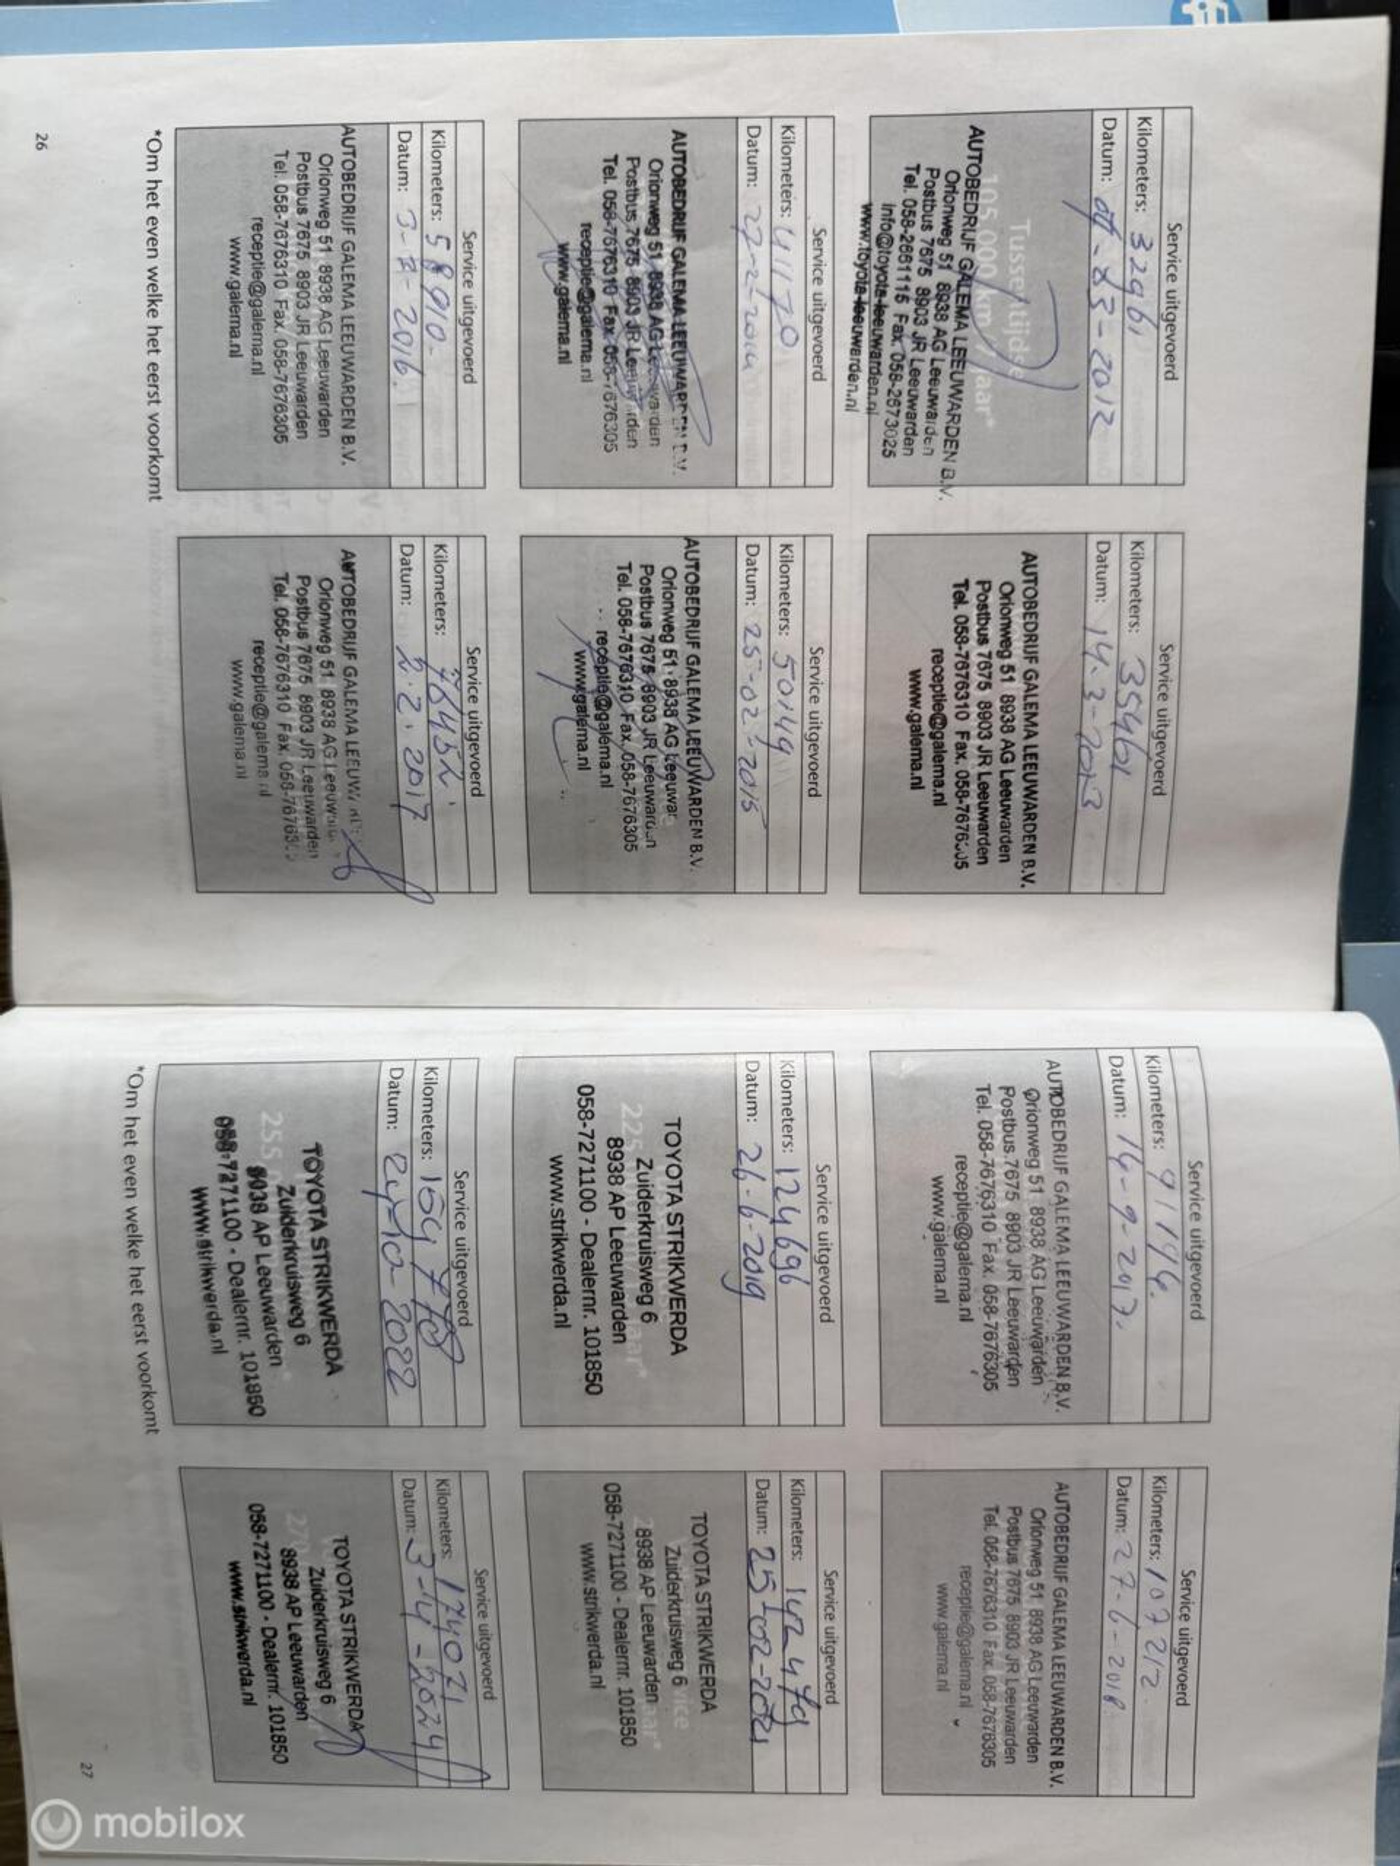 Service uitgevoerd
Kilometers: 32961
Datum: 03-2012
Tussentijdse
105.000 km jaar*
AUTOBEDRIJF GALEMA LEEUWARDEN B.V.
Orionweg 51 8938 AG Leeuwarden
Postbus 7675 8903 JR Leeuwarden
Tel. 058-2661115 Fax. 058-2673025
info@toyota-leeuwarden.nl
www.toyota-leeuwarden.nl
Service uitgevoerd
Kilometers: 35461
Datum: 14-3-2013
AUTOBEDRIJF GALEMA LEEUWARDEN B.V.
Orionweg 51 8938 AG Leeuwarden
Postbus 7675 8903 JR Leeuwarden
Tel. 058-7676310 Fax. 058-7676305
receptie@galema.nl
www.galema.nl
Service uitgevoerd
Kilometers: 41170
Datum: 27-2-2014
AUTOBEDRIJF GALEMA LEEUWARDEN B.V.
Orionweg 51 8938 AG Leeuwarden
Postbus 7675 8903 JR Leeuwarden
Tel. 058-7676310 Fax. 058-7676305
receptie@galema.nl
www.galema.nl
Service uitgevoerd
Kilometers: 50149
Datum: 25-02-2015
AUTOBEDRIJF GALEMA LEEUWARDEN B.V.
Orionweg 51 8938 AG Leeuwar
Postbus 7675 8903 JR Leeuwarden
Tel. 058-7676310 Fax. 058-7676305
receptie@galema.nl
www.galema.nl
Service uitgevoerd
Kilometers: 58910-
Datum: 3-2016
AUTOBEDRIJF GALEMA LEEUWARDEN B.V.
Orionweg 51 8938 AG Leeuwarden
Postbus 7675 8903 JR Leeuwarden
Tel. 058-7676310 Fax. 058-7676305
receptie@galema.nl
www.galema.nl
Service uitgevoerd
Kilometers: 76452
Datum: 2.2.2017
AUTOBEDRIJF GALEMA LEEUWARDEN
Orionweg 51 8938 AG Leeuwarden
Postbus 7675 8903 JR Leeuwarden
Tel. 058-7676310 Fax. 058-7676305
receptie@galema.nl
www.galema.nl
*Om het even welke het eerst voorkomt
26
Service uitgevoerd
Kilometers: 91146.
Datum: 14-9-2017.
AUTOBEDRIJF GALEMA LEEUWARDEN B.V.
Orionweg 51 8938 AG Leeuwarden
Postbus 7675 8903 JR Leeuwarden
Tel. 058-7676310 Fax. 058-7676305
receptie@galema.nl
www.galema.nl
Service uitgevoerd
Kilometers: 107212
Datum: 27-6-2018
AUTOBEDRIJF GALEMA LEEUWARDEN B.V.
Orionweg 51 8938 AG Leeuwarden
Postbus 7675 8903 JR Leeuwarden
Tel. 058-7676310 Fax. 058-7676305
receptie@galema.nl
www.galema.nl
Service uitgevoerd
Kilometers: 124696
Datum: 26-6-2019
TOYOTA STRIKWERDA
Zuiderkruisweg 6
8938 AP Leeuwarden
058-7271100 - Dealernr. 101850
www.strikwerda.nl
Service uitgevoerd
Kilometers: 142479
Datum: 25-02-2021
TOYOTA STRIKWERDA
Zuiderkruisweg 6
8938 AP Leeuwarden
058-7271100 - Dealernr. 101850
www.strikwerda.nl
Service uitgevoerd
Kilometers: 159778
Datum: -10-2022
TOYOTA STRIKWERDA
Zuiderkruisweg 6
8938 AP Leeuwarden
058-7271100 - Dealernr. 101850
www.strikwerda.nl
Service uitgevoerd
Kilometers: 174071
Datum: 3-4-2024
TOYOTA STRIKWERDA
Zuiderkruisweg 6
8938 AP Leeuwarden
058-7271100 - Dealernr. 101850
www.strikwerda.nl
*Om het even welke het eerst voorkomt
27
mobilox